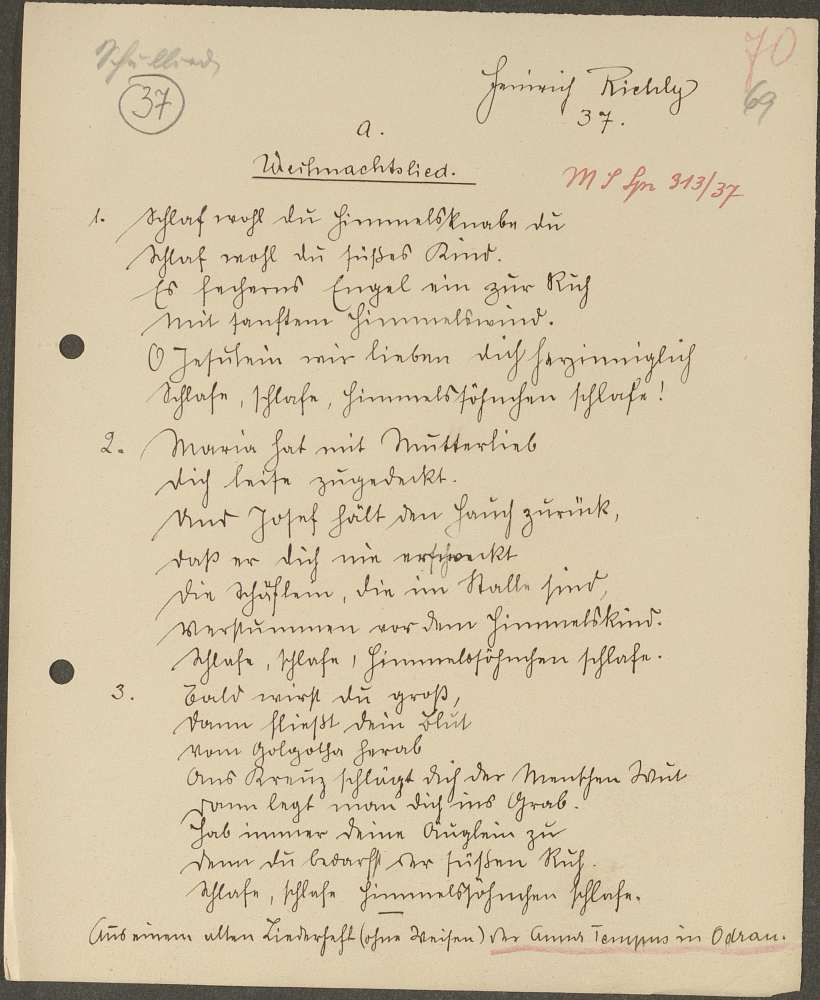 Schullied
37
70
69
Heinrich Richly
37.
a.
Weihnachtslied.
M S Spr 313/37
1. Schlaf wohl du Himmelsknabe du
Schlaf wohl du süßes Kind.
Es fecherns Engel ein zur Ruh
Mit sanftem Himmelswind.
O Jesulein wir lieben dich herzinniglich
Schlafe, schlafe, Himmelssöhnchen schlafe!
2. Maria hat mit Mutterlieb
dich leise zugedeckt.
Und Josef hält den Hauch zurück,
daß er dich nie erschreckt
Die Schäflein, die im Stalle sind,
Verstummen vor dem Himmelskind.
Schlafe, schlafe, Himmelssöhnchen schlafe.
3. Bald wirst du groß,
Dann fließt dein Blut
vom Golgotha herab
Ans Kreuz schlägt dich der Menschen Wut
Dann legt man dich ins Grab.
Hab immer deine Äuglein zu
denn du bedarfst der süßen Ruh.
Schlafe, schlafe Himmelssöhnchen schlafe.
Aus einem alten Liederheft (ohne Weisen) der Anna Tempus in Odrau.